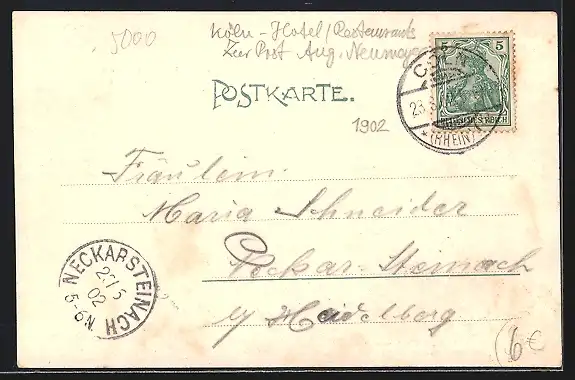 5000
Köln - Hotel / Restaurants
Zur Post Aug. Neumeyer
POSTKARTE.
5 5
DEUTSCHES REICH
CÖLN
23.
* (RHEIN)
1902
Fräulein
Maria Schneider
Neckar-Steinach
b/ Heidelberg
NECKARSTEINACH
23 5
02
5-6N.
6 €